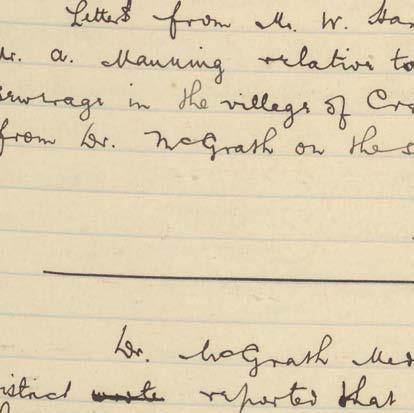 Letters from Mr. W. Han
Mr. A. Manning relative to
sewerage in the village of Cre
from Dr. McGrath on the s
Dr. McGrath Med
istrict wrote reported that